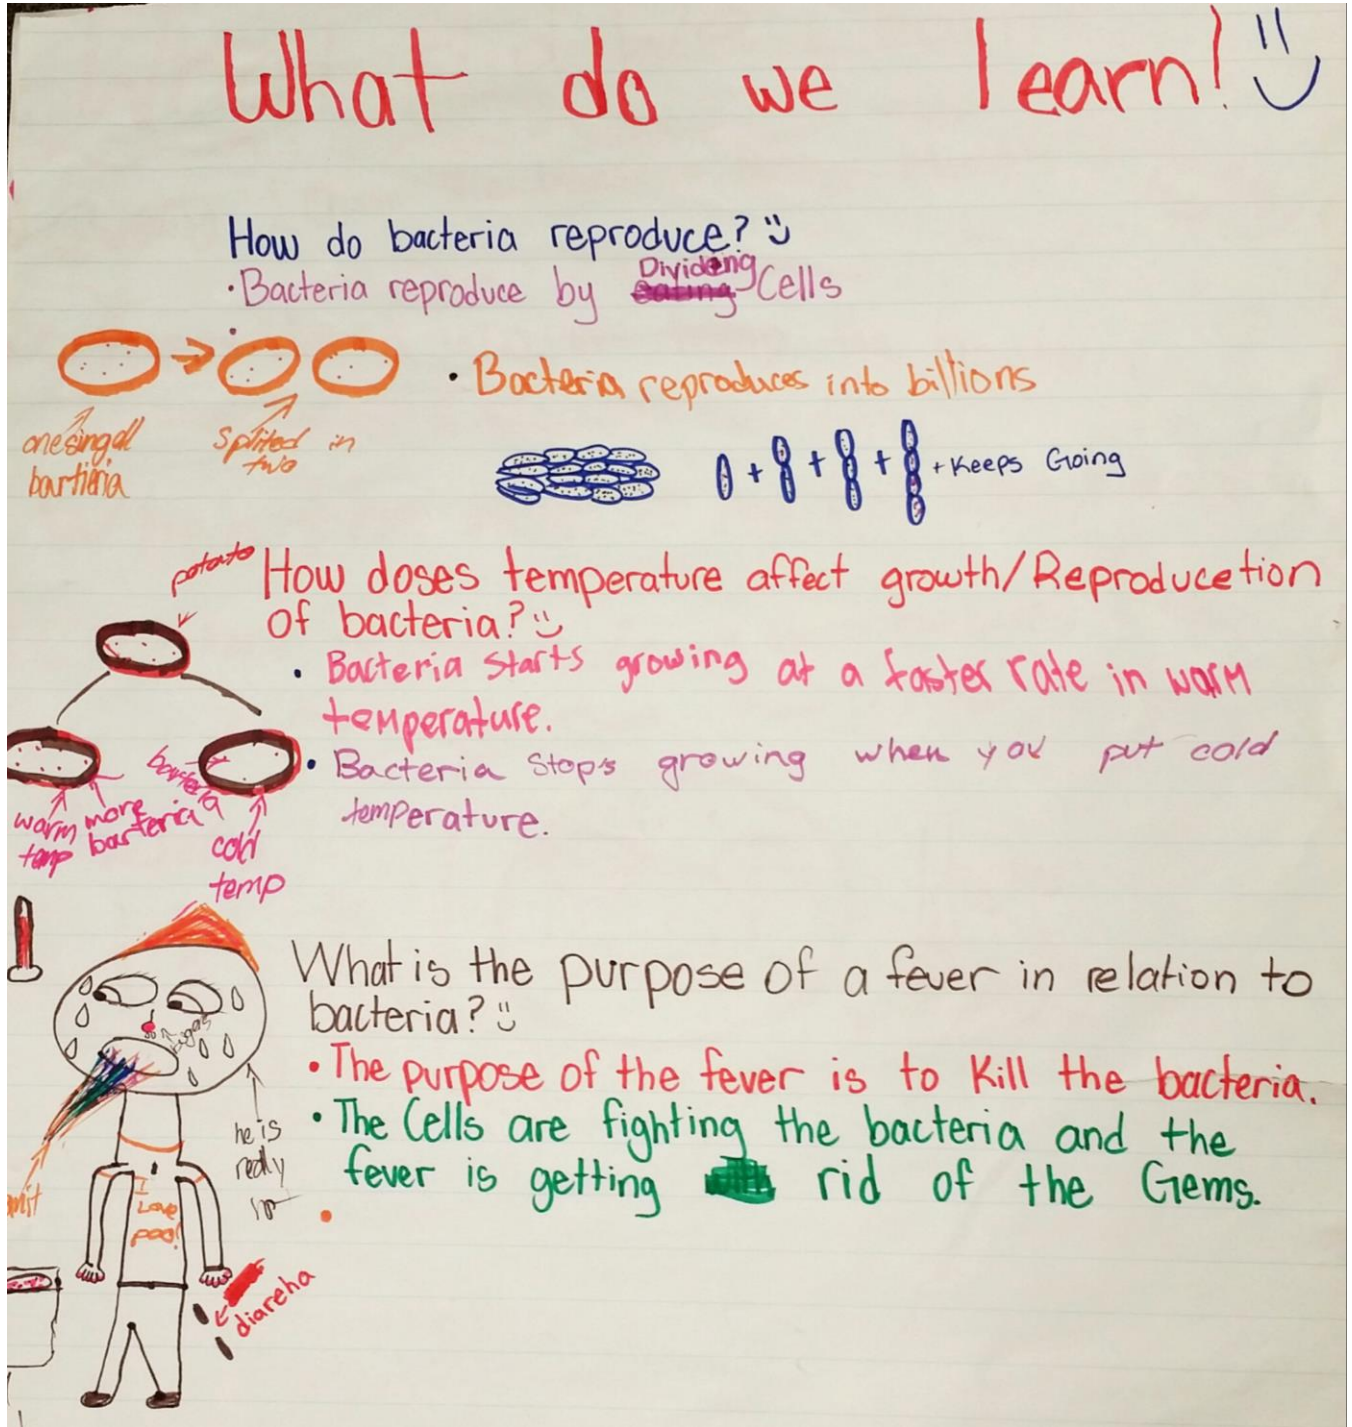 What do we learn!
How do bacteria reproduce?
Dividing
• Bacteria reproduce by eating Cells
• Bacteria reproduces into billions
one singall
bartieria
Splited in
two
+ + + + Keeps Going
potato
How doses temperature affect growth/Reproducetion
of bacteria?
• Bacteria starts growing at a faster rate in warm
temperature.
• Bacteria stops growing when you put cold
temperature.
bacteria
warm
temp
more
barteria
cold
temp
What is the purpose of a fever in relation to
bacteria?
• The purpose of the fever is to Kill the bacteria.
• The Cells are fighting the bacteria and the
fever is getting rid of the Gems.
he is
really
I
Love
poo!
diareha